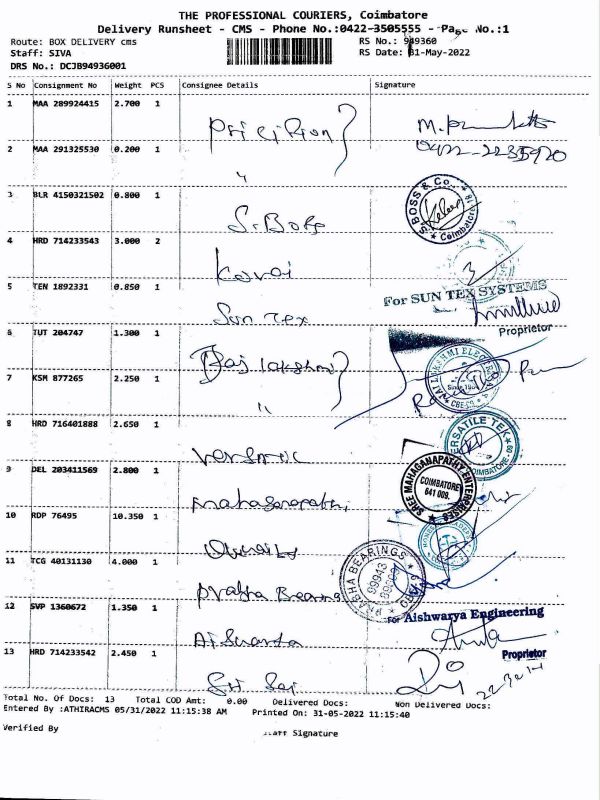 THE PROFESSIONAL COURIERS, Coimbatore
Delivery Runsheet - CMS - Phone No.:0422-3505555 - Page No.:1
Route: BOX DELIVERY cms RS No.: 949360
Staff: SIVA RS Date: 31-May-2022
DRS No.: DCJB94936001
S No Consignment No Weight PCS Consignee Details Signature
1 MAA 289924415 2.700 1
2 MAA 291325530 0.200 1
3 BLR 4150321502 0.800 1
S.BOSS & Co.
Coimbatore
S. Boss
4 HRD 714233543 3.000 2
Kovai
5 TEN 1892331 0.850 1
For SUN TEX SYSTEMS
Sun Tex
Proprietor
6 TUT 204747 1.300 1
Raj lakshmi
7 KSM 877265 2.250 1
8 HRD 716401888 2.650 1
VERSATILE TEK
COIMBATORE
9 DEL 203411569 2.800 1
SREE MAHAGANAPATHY ENTERPRISES
COIMBATORE
641 009.
Mahaganapathi
10 RDP 76495 10.350 1
11 TCG 40131130 4.000 1
PRABHA BEARINGS
Prabha Bearing
12 SVP 1360672 1.350 1
For Aishwarya Engineering
Proprietor
13 HRD 714233542 2.450 1
Sri Sai
Total No. Of Docs: 13 Total COD Amt: 0.00 Delivered Docs: Non Delivered Docs:
Entered By :ATHIRACMS 05/31/2022 11:15:38 AM Printed On: 31-05-2022 11:15:40
Verified By Staff Signature